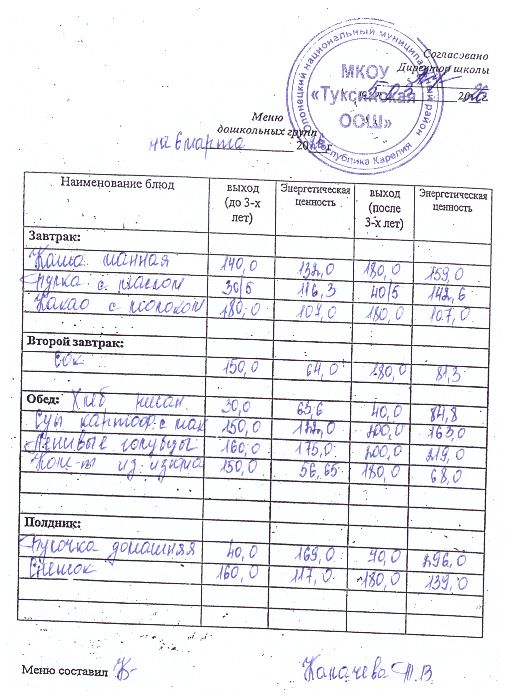 Согласовано
Директор школы
МКОУ «Туксинская ООШ»
Олонецкий национальный муниципальный район
Республика Карелия
Меню
дошкольных групп
на 6 марта 20 г.
Наименование блюд выход (до 3-х лет) Энергетическая ценность выход (после 3-х лет) Энергетическая ценность
Завтрак:
Каша манная 140,0 132,0 180,0 159,0
Булка с маслом 30/5 116,3 40/5 142,6
Какао с молоком 180,0 107,0 180,0 107,0
Второй завтрак:
Сок 150,0 64,0 180,0 81,3
Обед: Хлеб 30,0 63,6 40,0 84,8
Суп картоф. с мак 150,0 132,0 200,0 163,0
Ленивые голубцы 160,0 175,0 200,0 219,0
Ком-т из изюма 150,0 56,65 180,0 68,0
Полдник:
Булочка домашняя 40,0 169,0 70,0 296,0
Снежок 160,0 117,0 180,0 139,0
Меню составил Капачева Т.В